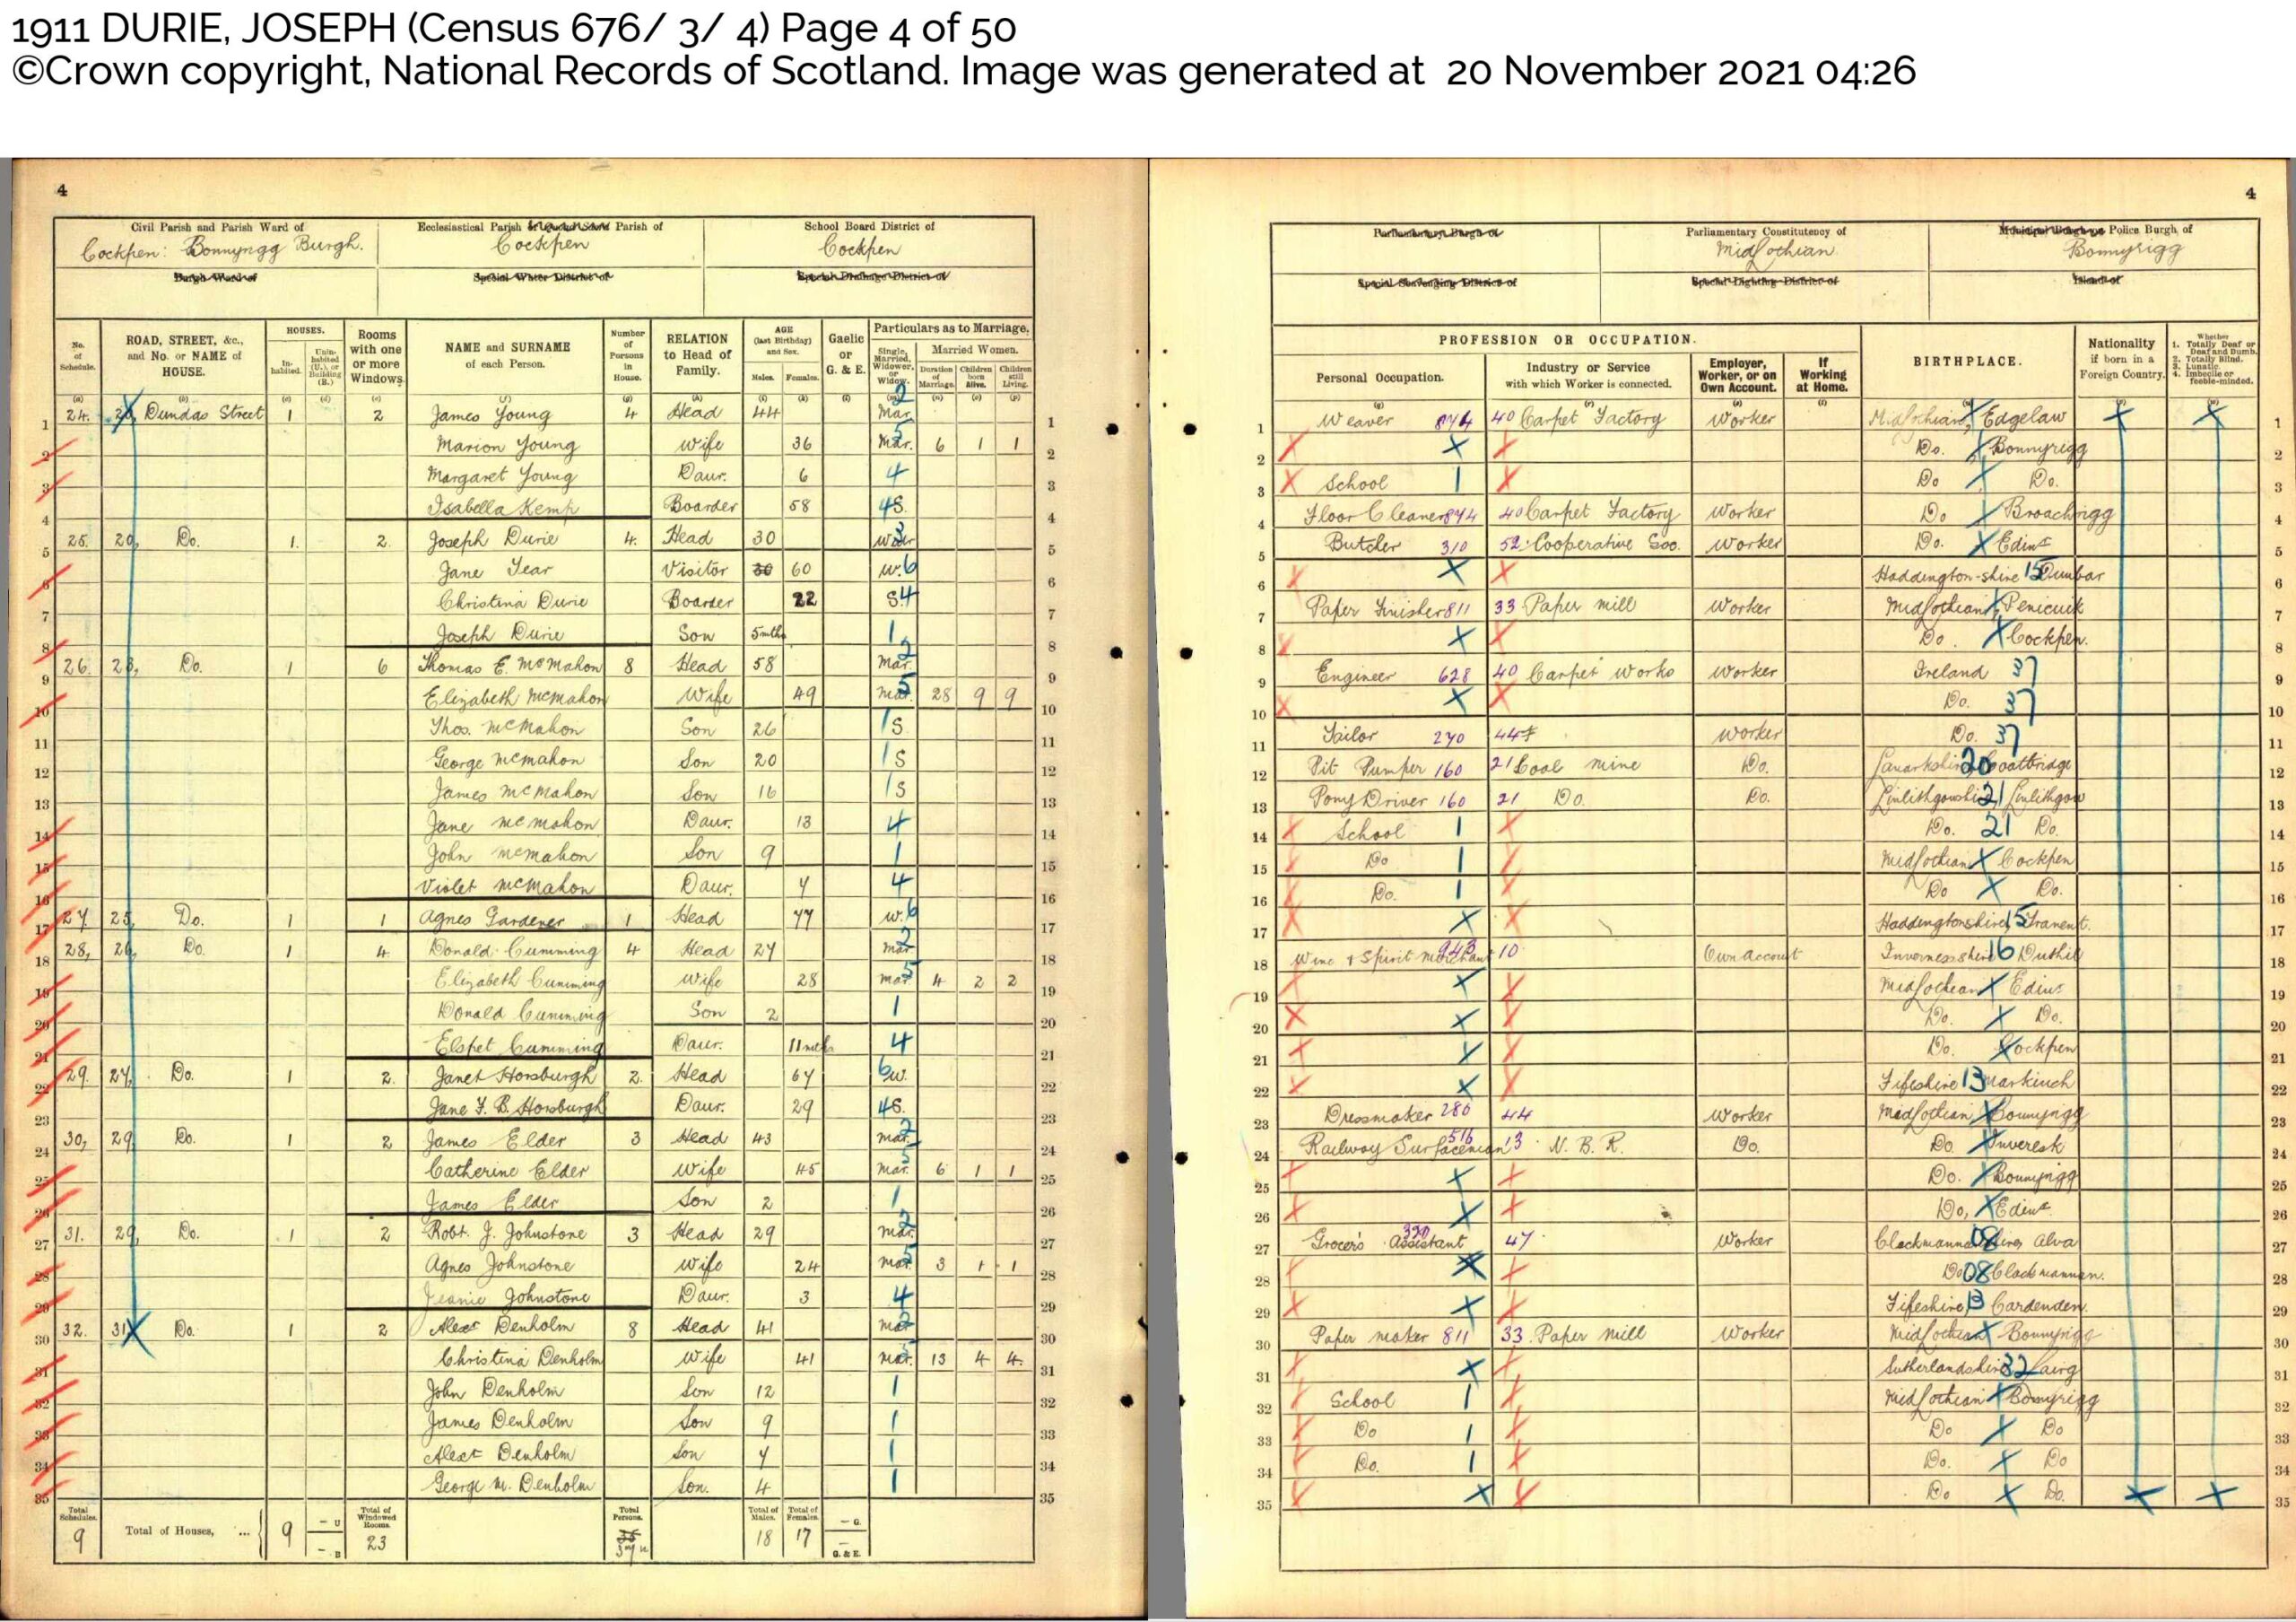 1911 DURIE, JOSEPH (Census 676/ 3/ 4) Page 4 of 50
©Crown copyright, National Records of Scotland. Image was generated at 20 November 2021 04:26
4
Civil Parish and Parish Ward of Ecclesiastical Parish Parish of School Board District of
Cockpen: Bonnyrigg Burgh. Cockpen Cockpen
Burgh Ward of Special Water District of Special Drainage District of
No. of Schedule. ROAD, STREET, &c., and No. or NAME of HOUSE. HOUSES. Inhabited. Uninhabited (U.), or Building (B.) Rooms with one or more Windows. NAME and SURNAME of each Person. Number of Persons in House. RELATION to Head of Family. AGE (last Birthday) and Sex. Males. Females. Gaelic or G. & E. Particulars as to Marriage. Single, Married, Widower, or Widow. Married Women. Duration of Marriage. Children born Alive. Children still Living.
1 24. Dundas Street 1 2 James Young 4 Head 44 Mar. 2 1
2 Marion Young Wife 36 Mar. 5 6 1 1 2
3 Margaret Young Daur. 6 4 3
4 Isabella Kemp Boarder 58 4 S. 4
5 25. 20, Do. 1. 2. Joseph Durie 4. Head 30 Wdr 3 5
6 Jane Year Visitor 30 60 W. 6 6
7 Christina Durie Boarder 22 S 4 7
8 Joseph Durie Son 5 mths 1 8
9 26. 23, Do. 1 6 Thomas E. McMahon 8 Head 58 Mar. 2 9
10 Elizabeth McMahon Wife 49 Mar. 5 28 9 9 10
11 Thos. McMahon Son 26 1 S. 11
12 George McMahon Son 20 1 S 12
13 James McMahon Son 16 1 S 13
14 Jane McMahon Daur. 13 4 14
15 John McMahon Son 9 1 15
16 Violet McMahon Daur. 7 4 16
17 27. 25, Do. 1 1 Agnes Gardener 1 Head 77 W. 6 17
18 28, 26, Do. 1 4. Donald Cumming 4 Head 27 Mar. 2 18
19 Elizabeth Cumming Wife 28 Mar. 5 4 2 2 19
20 Donald Cumming Son 2 1 20
21 Elspet Cumming Daur. 11 mths 4 21
22 29. 27, Do. 1 2. Janet Horsburgh 2. Head 67 6 W. 22
23 Jane F. B. Horsburgh Daur. 29 4 S. 23
24 30, 29, Do. 1 2 James Elder 3 Head 43 Mar. 2 24
25 Catherine Elder Wife 45 Mar. 5 6 1 1 25
26 James Elder Son 2 1 26
27 31. 29, Do. 1 2 Robt. J. Johnstone 3 Head 29 Mar. 2 27
28 Agnes Johnstone Wife 24 Mar. 5 3 1 1 28
29 Jeanie Johnstone Daur. 3 4 29
30 32. 31 Do. 1 2 Alexr Denholm 8 Head 41 Mar 2 30
31 Christina Denholm Wife 41 Mar. 5 13 4 4. 31
32 John Denholm Son 12 1 32
33 James Denholm Son 9 1 33
34 Alexr Denholm Son 7 1 34
35 George M. Denholm Son. 4 1 35
Total Schedules. 9 Total of Houses, ... 9 – U – B Total of Windowed Rooms. 23 Total Persons. Total of Males. 18 Total of Females. 17 – G. – G. & E.
4
Parliamentary Burgh of Parliamentary Constitutency of Police Burgh of
Midlothian. Bonnyrigg
Special Scavenging District of Special Lighting District of Island of
PROFESSION OR OCCUPATION. Personal Occupation. Industry or Service with which Worker is connected. Employer, Worker, or on Own Account. If Working at Home. BIRTHPLACE. Nationality if born in a Foreign Country. Whether 1. Totally Deaf or Deaf and Dumb. 2. Totally Blind. 3. Lunatic. 4. Imbecile or feeble-minded.
1 Weaver 874 40 Carpet Factory Worker Midlothian, Edgelaw 1
2 Do. Bonnyrigg 2
3 School 1 Do Do. 3
4 Floor Cleaner 874 40 Carpet Factory Worker Do 4
5 Butcher 310 52 Cooperative Soc. Worker Do. Edinr 5
6 Haddington-shire 15 Dunbar 6
7 Paper Finisher 811 33 Paper mill Worker Midlothian, Penicuik 7
8 Do. Cockpen. 8
9 Engineer 628 40 Carpet Works Worker Ireland 37 9
10 Do. 37 10
11 Tailor 270 44 Worker Do. 37 11
12 Pit Pumper 160 21 Coal mine Do. Lanarkshire 20 Coatbridge 12
13 Pony Driver 160 21 Do. Do. Linlithgowshire 21 Linlithgow 13
14 School 1 Do. 21 Do. 14
15 Do 1 Midlothian Cockpen 15
16 Do. 1 Do Do. 16
17 Haddingtonshire, 15 Tranent. 17
18 Wine & Spirit Merchant 943 10 Own Account Invernessshire 16 Duthil 18
19 Midlothian Edinr. 19
20 Do. Do. 20
21 Do. Cockpen 21
22 Fifeshire 13 Markinch 22
23 Dressmaker 280 44 Worker Midlothian Bonnyrigg 23
24 Railway Surfaceman 516 13 N. B. R. Do. Do. Inveresk 24
25 Do. Bonnyrigg 25
26 Do, Edinr. 26
27 Grocer's Assistant 47 Worker Clackmannanshire, 08 Alva 27
28 Do 08 Clackmannan. 28
29 Fifeshire, 13 Cardenden. 29
30 Paper maker 811 33 Paper Mill Worker Midlothian Bonnyrigg 30
31 Sutherlandshire 32 Lairg 31
32 School 1 Midlothian Bonnyrigg 32
33 Do 1 Do Do 33
34 Do. 1 Do. Do 34
35 Do Do. 35